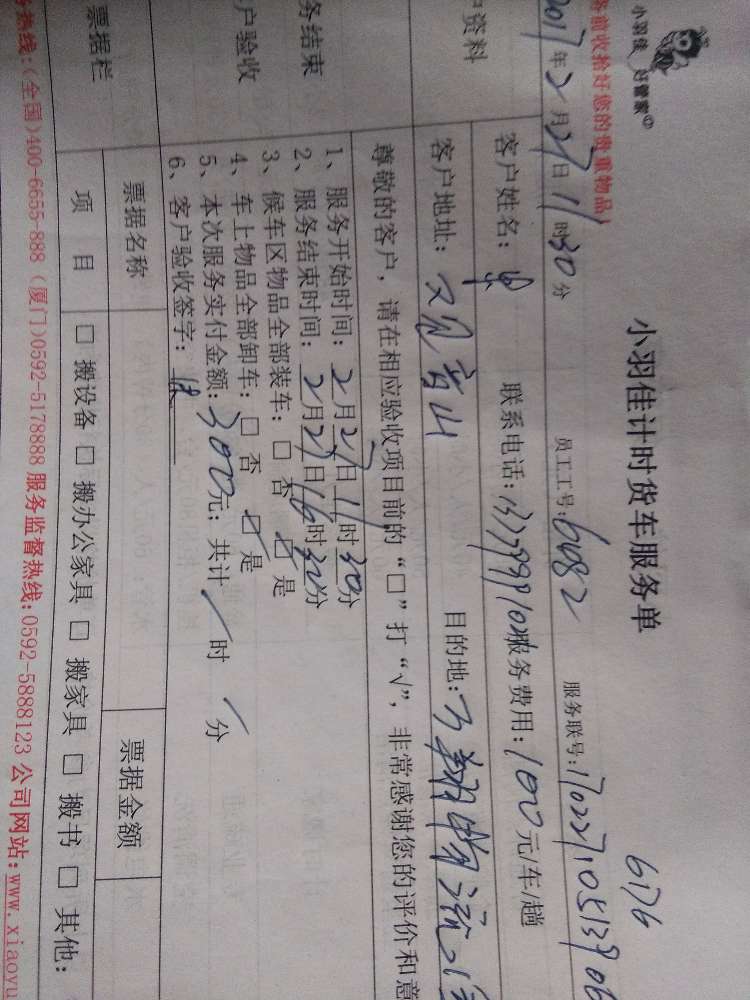 小羽佳 好管家
小羽佳计时货车服务单
6176
务前收拾好您的贵重物品)
2017年2月27日11时30分 员工工号:6082 服务联号:
户资料 客户姓名: 联系电话: 服务费用:100元/车/趟
客户地址: 又见香山 目的地:万翔物流
尊敬的客户,请在相应验收项目前的“□”打“√”,非常感谢您的评价和意
务结束
户验收
1、服务开始时间:2月27日11时30分
2、服务结束时间:2月27日16时30分
3、候车区物品全部装车:□ 否 ☑ 是
4、车上物品全部卸车:□ 否 ☑ 是
5、本次服务实付金额:300元;共计/时/分
6、客户验收签字:
票据栏 票据名称 票据金额
项 目 □ 搬设备 □ 搬办公家具 □ 搬家具 □ 搬书 □ 其他:
务热线:(全国)400-6655-888 (厦门)0592-5178888 服务监督热线:0592-5888123 公司网站:www.xiaoyu